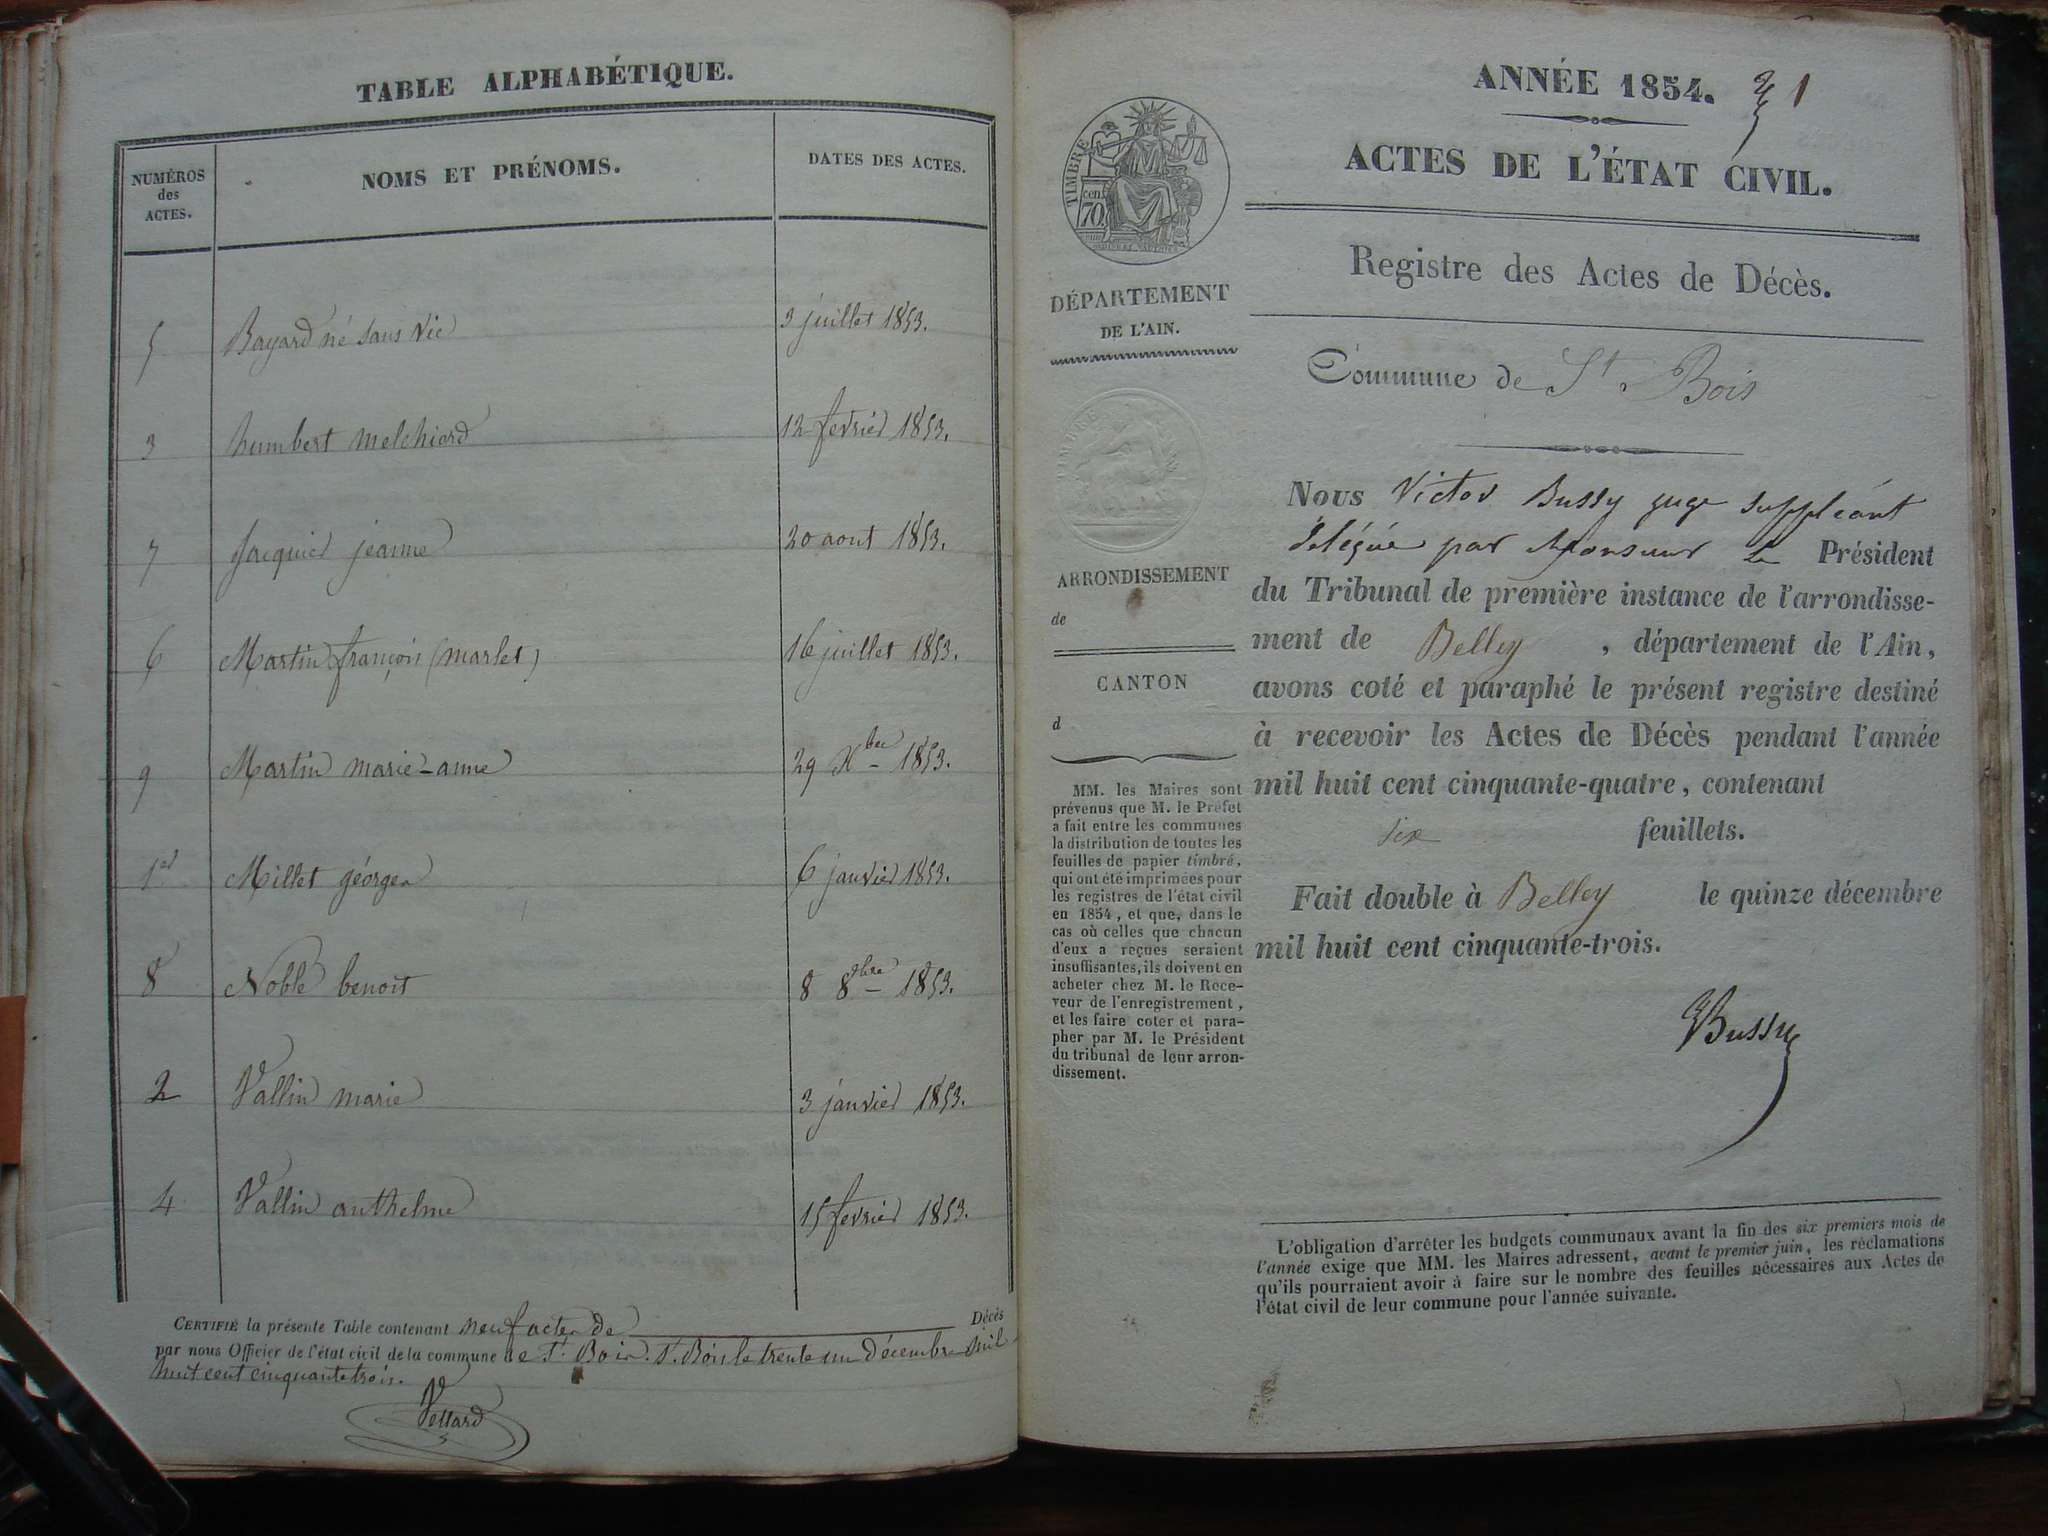 TABLE ALPHABÉTIQUE.
NUMÉROS des ACTES. NOMS ET PRÉNOMS. DATES DES ACTES.
5 Bayard né sans vie 3 juillet 1853.
3 humbert melchiord 12 fevrier 1853.
7 Jacquier jeanne 20 aout 1853.
6 Martin françois (marlet) 16 juillet 1853.
9 Martin marie-anne 29 Xbre 1853.
1er Millet géorges 6 janvier 1853.
8 Noble benoit 8 8bre 1853.
2 Vallin marie 3 janvier 1853.
4 Vallin anthelme 15 fevrier 1853.
CERTIFIÉ la présente Table contenant neuf actes de Décès
par nous Officier de l'état civil de la commune de St. Bois. St. Bois le trente un décembre mil
huit cent cinquante trois.
Vettard
ANNÉE 1854. 1
ACTES DE L'ÉTAT CIVIL.
Registre des Actes de Décès.
Commune de St. Bois
TIMBRE
cen
70.
DÉPARTEMENT
DE L'AIN.
ARRONDISSEMENT
de
CANTON
d
MM. les Maires sont
prévenus que M. le Préfet
a fait entre les communes
la distribution de toutes les
feuilles de papier timbré,
qui ont été imprimées pour
les registres de l'état civil
en 1854, et que, dans le
cas où celles que chacun
d'eux a reçues seraient
insuffisantes, ils doivent en
acheter chez M. le Rece-
veur de l'enregistrement,
et les faire coter et para-
pher par M. le Président
du tribunal de leur arron-
dissement.
Nous Victor Bussy juge suppléant
délégué par Monsieur le Président
du Tribunal de première instance de l'arrondisse-
ment de Belley , département de l'Ain,
avons coté et paraphé le présent registre destiné
à recevoir les Actes de Décès pendant l'année
mil huit cent cinquante-quatre, contenant
six feuillets.
Fait double à Belley le quinze décembre
mil huit cent cinquante-trois.
VBussy
L'obligation d'arrêter les budgets communaux avant la fin des six premiers mois de
l'année exige que MM. les Maires adressent, avant le premier juin, les réclamations
qu'ils pourraient avoir à faire sur le nombre des feuilles nécessaires aux Actes de
l'état civil de leur commune pour l'année suivante.